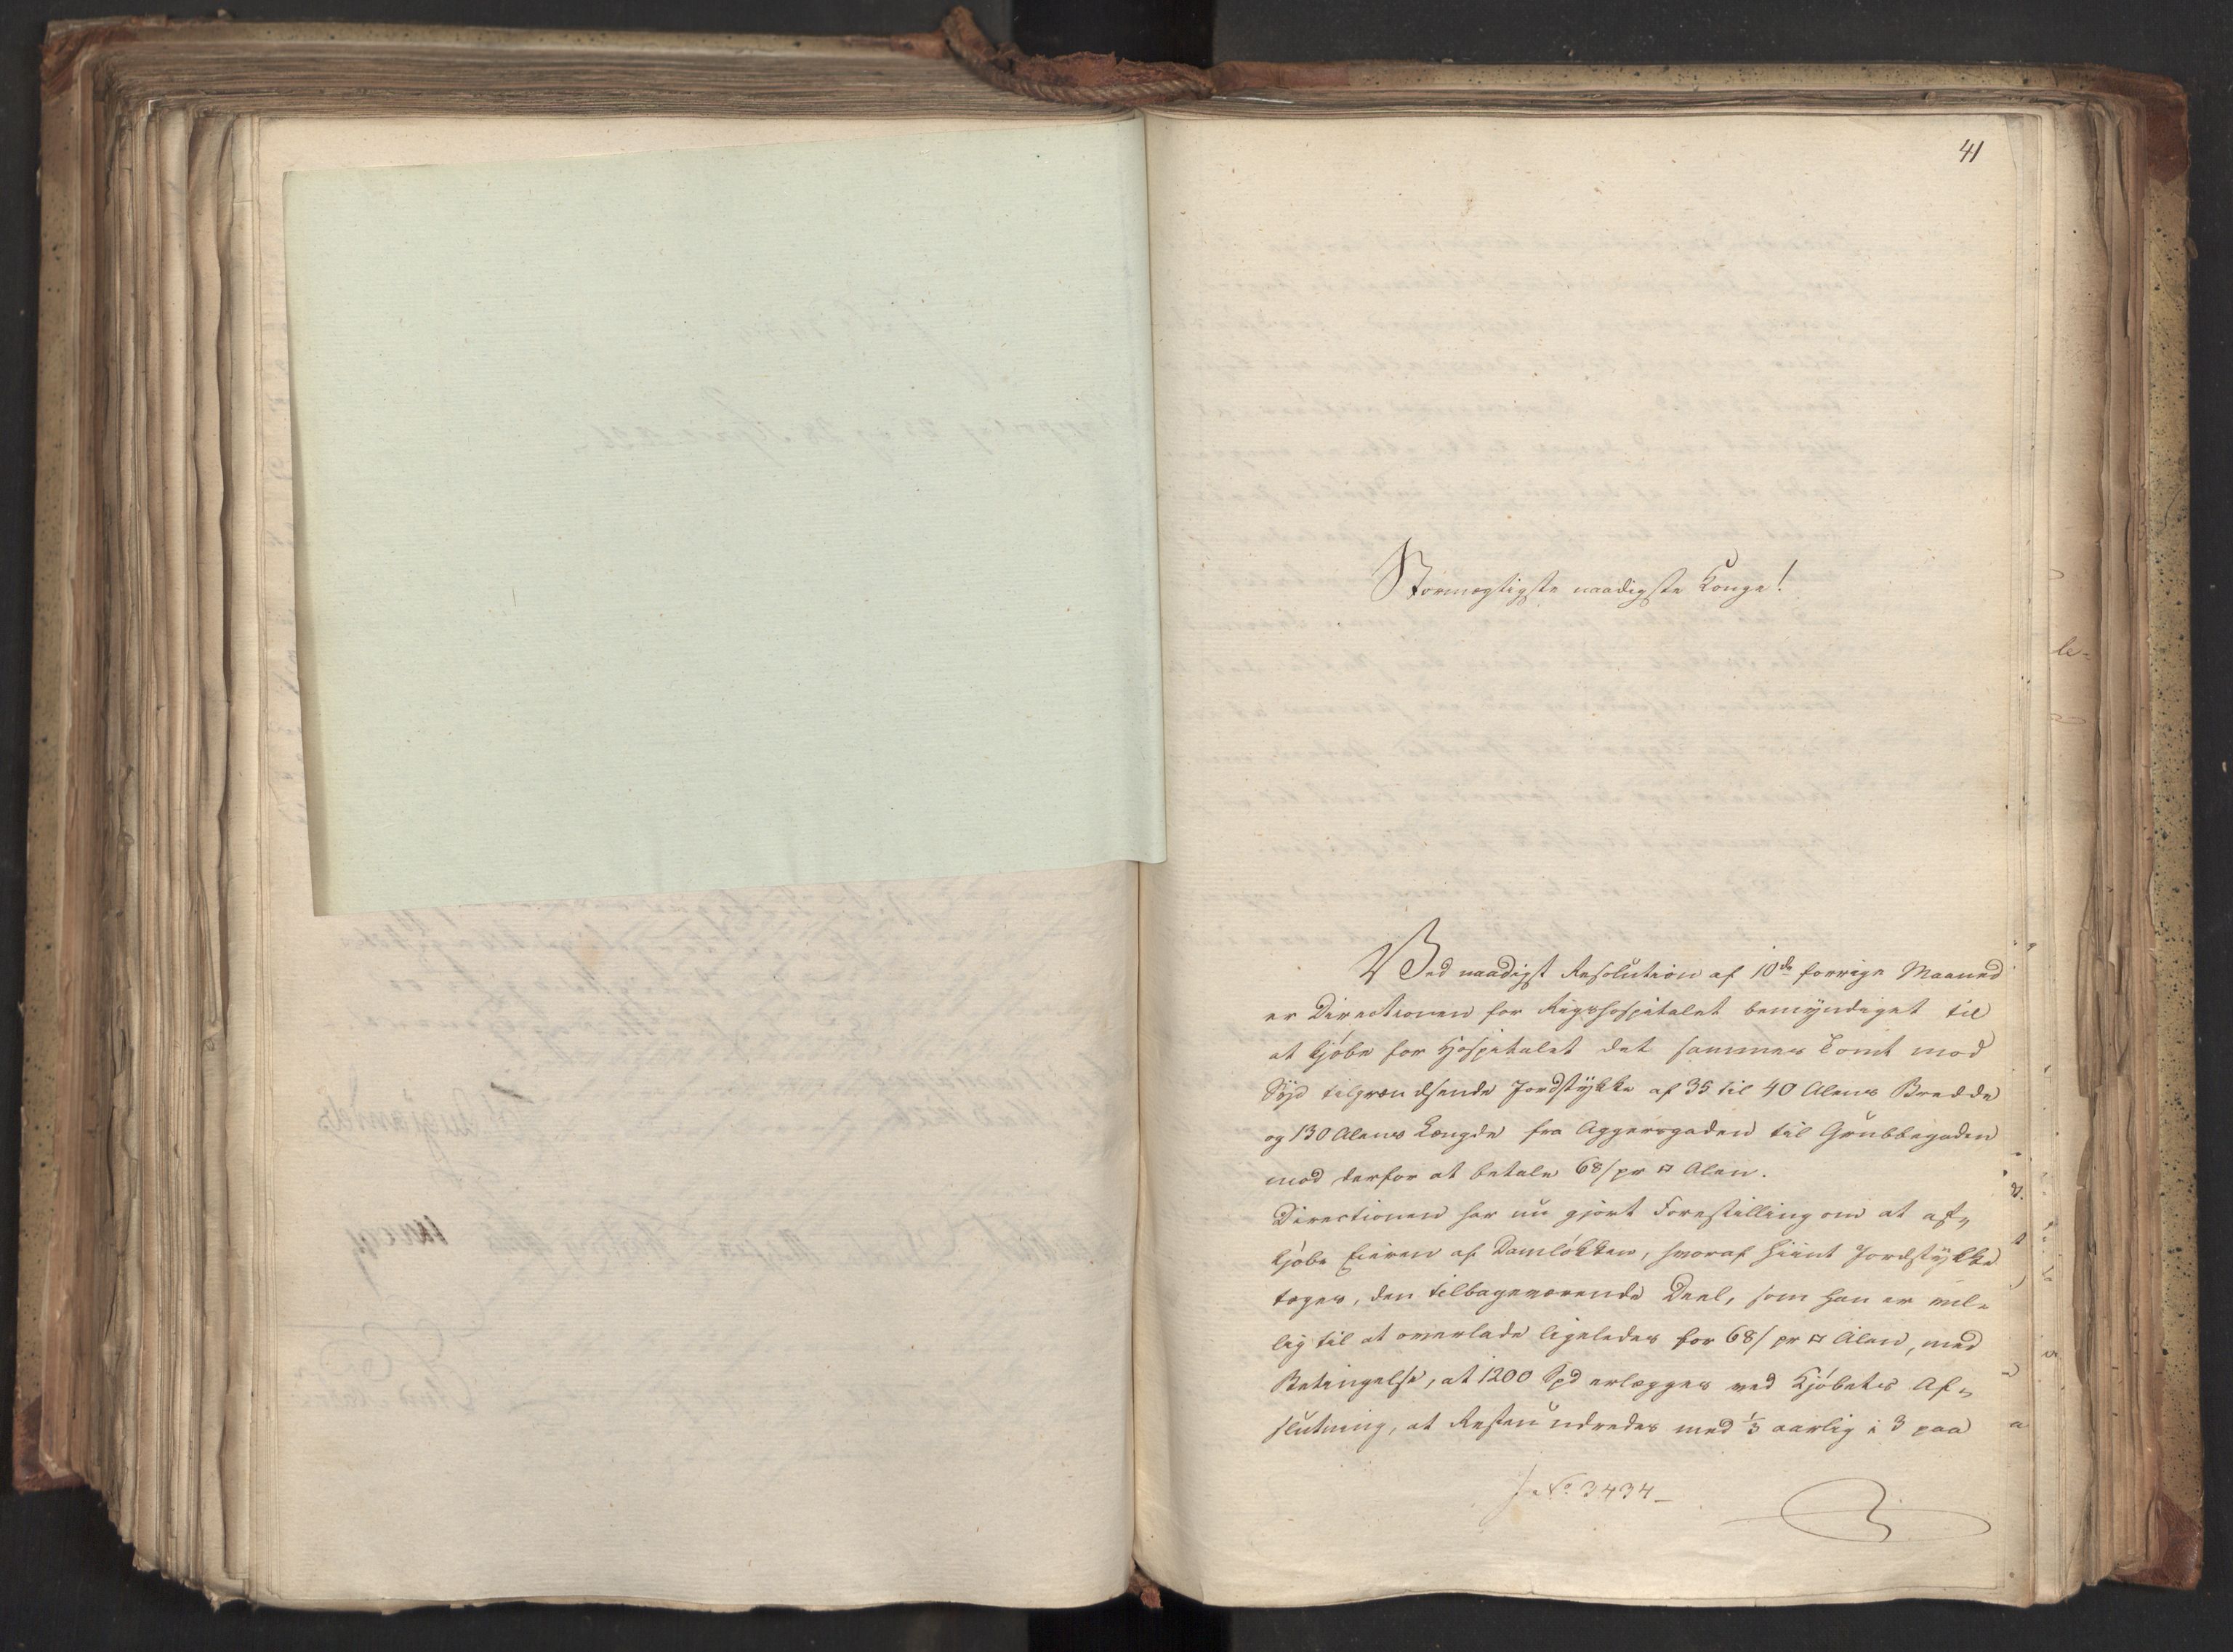 41
Stormægtigste naadigste Konge!
Ved naadigst Resolution af 10de forrige Maaned
er Directionen for Rigshospitalet bemyndiget til
at kjøbe for Hospitalet det sammes Tomt mod
Syd tilgrændsende Jordstykke af 35 til 40 Alens Bredde
og 130 Alens Længde fra Aggersgaden til Grubbegaden
mod derfor at betale 68/ pr □ Alen.
Directionen har nu gjort Forestilling om at af„
kjøbe Eieren af Damløkken, hvoraf hiint Jordstykke
toges, den tilbageværende Deel, som han er vil„
lig til at overlade ligeledes for 68/ pr □ Alen, med
Betingelse, at 1200 Spd erlægges ved Kjøbets Af„
slutning, at Resten udredes med 1/3 aarlig i 3 paa
J. No 3434_